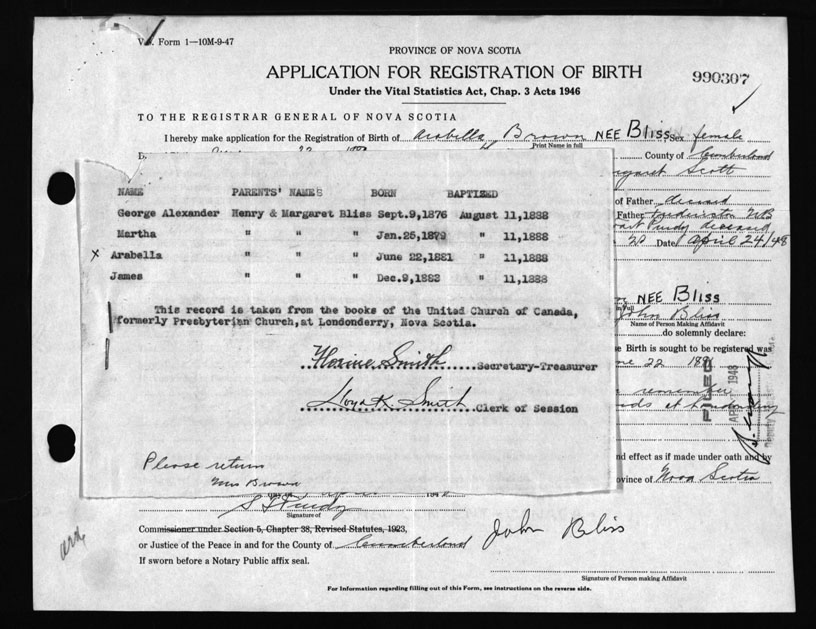 V.S. Form 1—10M-9-47
PROVINCE OF NOVA SCOTIA
APPLICATION FOR REGISTRATION OF BIRTH
990307
Under the Vital Statistics Act, Chap. 3 Acts 1946
TO THE REGISTRAR GENERAL OF NOVA SCOTIA
I hereby make application for the Registration of Birth of Arabella Brown NEE Bliss Sex female
Print Name in full
County of Cumberland
NAME PARENTS' NAMES BORN BAPTISED
George Alexander Henry & Margaret Bliss Sept.9,1876 August 11,1888
Martha " " " Jan.25,1879 " 11,1888
x Arabella " " " June 22,1881 " 11,1888
James " " " Dec.9,1883 " 11,1888
This record is taken from the books of the United Church of Canada,
formerly Presbyterian Church,at Londonderry, Nova Scotia.
Florine Smith Secretary-Treasurer
Lloyd K. Smith Clerk of Session
Please return
Mrs Brown
Scott
of Father deceased
Father NB
deceased
Date April 24/48
NEE Bliss
John Bliss
Name of Person Making Affidavit
do solemnly declare:
Birth is sought to be registered was
22
remember
at
FILED
1948
nd effect as if made under oath and by
ovince of Nova Scotia
Signature of
Commissioner under Section 5, Chapter 38, Revised Statutes, 1923,
or Justice of the Peace in and for the County of Cumberland
John Bliss
If sworn before a Notary Public affix seal.
Signature of Person making Affidavit
For Information regarding filling out of this Form, see instructions on the reverse side.